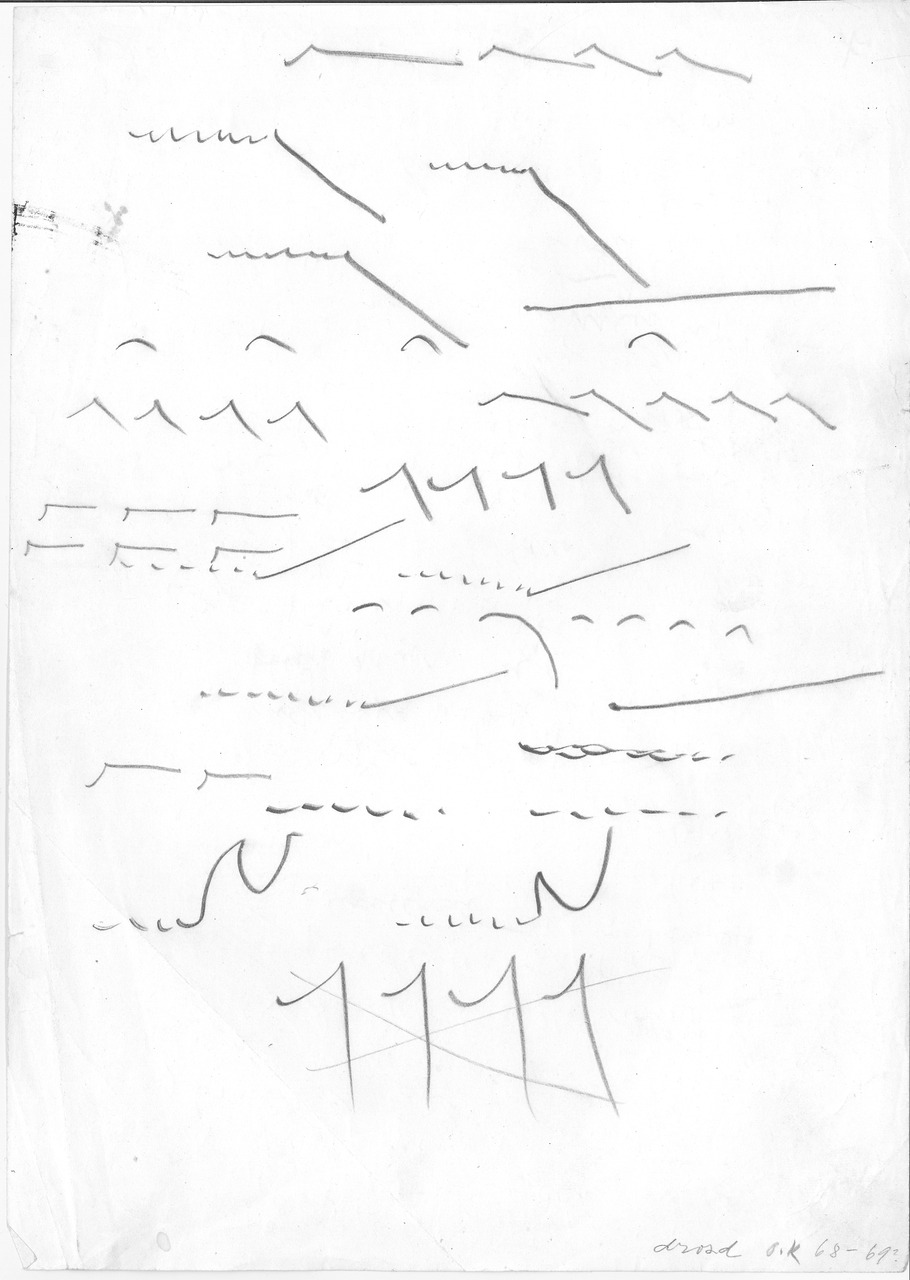 drozd o.k 68-69?